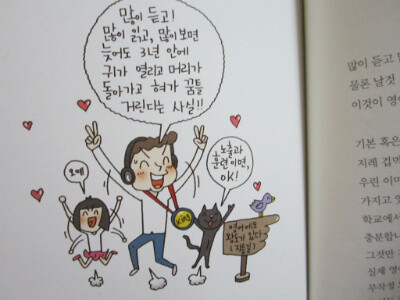 많이 듣고!
많이 읽고, 많이 보면
늦어도 3년 안에
귀가 열리고 머리가
돌아가고 혀가 꿈틀
거린다는 사실!!
노출과
훈련이면,
OK!
오예!
영어에는
왕도가 있다
많이 듣고
물론 날것
이것이 영
기본 혹은
지레 겁먹
우린 이미
가지고 있
학교에서
충분합니
그것만
실제 영
무작정